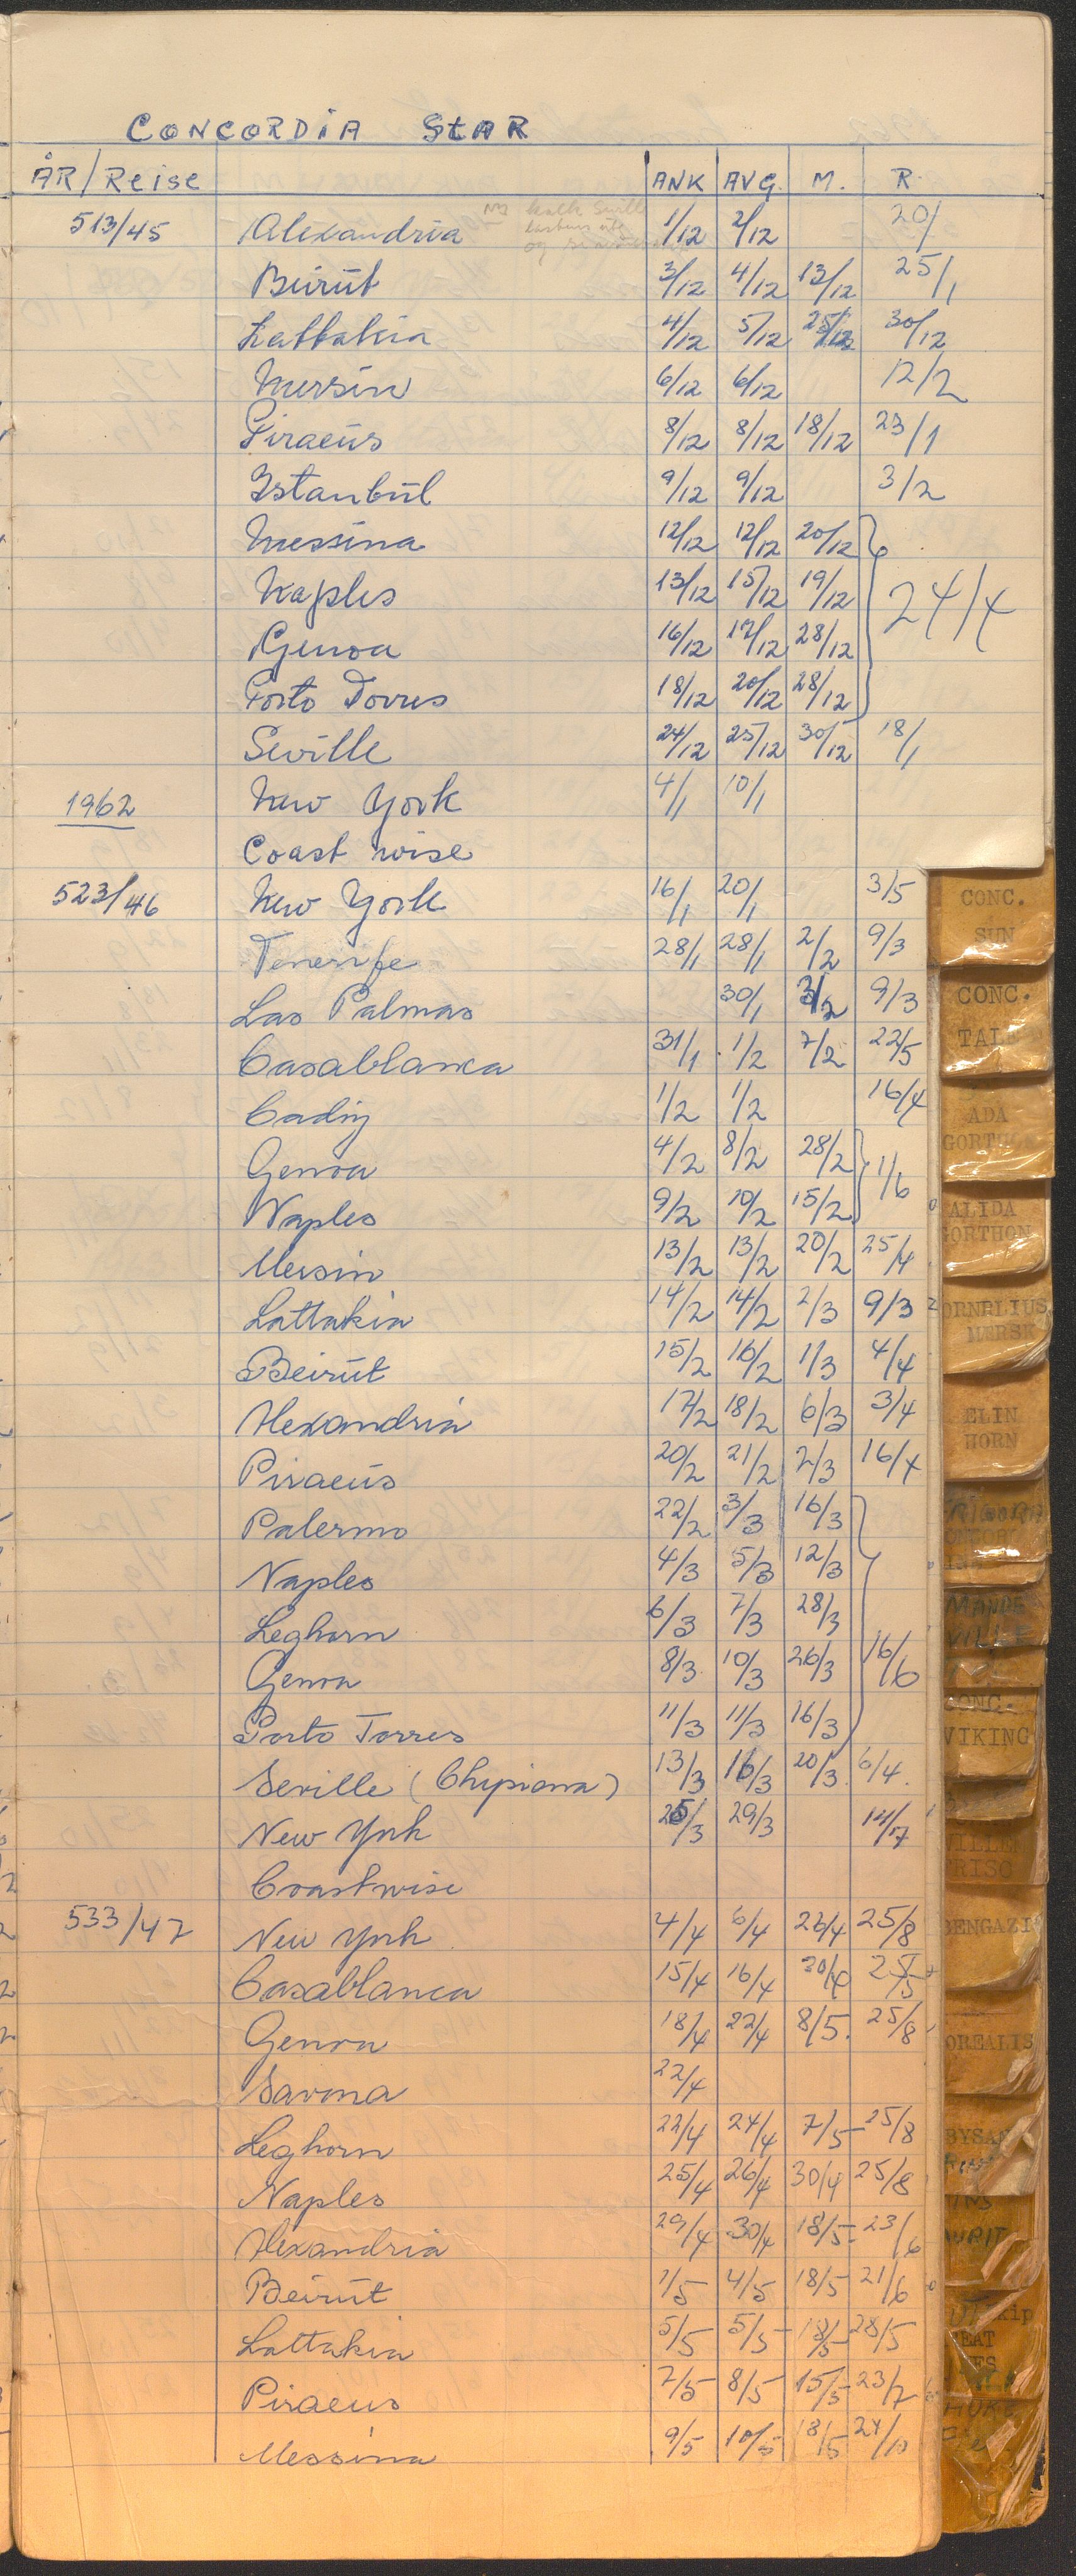 CONCORDIA STAR
ÅR/Reise ANK AVG. M. R.
513/45 Alexandria 1/12 2/12 20/
Beirut 3/12 4/12 13/12 25/1
Lattakia 4/12 5/12 25/12 30/12
Mersin 6/12 6/12 12/2
Piraeus 8/12 8/12 18/12 23/1
Istanbul 9/12 9/12 3/2
Messina 12/12 12/12 20/12
Naples 13/12 15/12 19/12 24/4
Genoa 16/12 17/12 28/12
Porto Torres 18/12 20/12 28/12
Seville 24/12 25/12 30/12 18/1
1962 New York 4/1 10/1
Coast wise
523/46 New York 16/1 20/1 3/5
Tenerife 28/1 28/1 2/2 9/3
Las Palmas 30/1 3/2 9/3
Casablanca 31/1 1/2 7/2 22/5
Cadiz 1/2 1/2 16/4
Genoa 4/2 8/2 28/2 1/6
Naples 9/2 10/2 15/2
Mersin 13/2 13/2 20/2 25/4
Lattakia 14/2 14/2 2/3 9/3
Beirut 15/2 16/2 1/3 4/4
Alexandria 17/2 18/2 6/3 3/4
Piraeus 20/2 21/2 2/3 16/4
Palermo 22/2 3/3 16/3
Naples 4/3 5/3 12/3
Leghorn 6/3 7/3 28/3
Genoa 8/3 10/3 26/3 16/6
Porto Torres 11/3 11/3 16/3
Seville (Chipiona) 13/3 16/3 20/3 6/4
New York 25/3 29/3 14/7
Coastwise
533/47 New York 4/4 6/4 26/4 25/8
Casablanca 15/4 16/4 20/4 25/5
Genoa 18/4 22/4 8/5. 25/8
Savona 22/4
Leghorn 22/4 24/4 7/5 25/8
Naples 25/4 26/4 30/4 25/8
Alexandria 29/4 30/4 18/5 23/6
Beirut 1/5 4/5 18/5 21/6
Lattakia 5/5 5/5 18/5 28/5
Piraeus 7/5 8/5 15/5 23/7
Messina 9/5 10/5 18/5 24/10
CONC.
SUN
CONC.
ADA
GORTHON
ALIDA
GORTHON
CORNELIUS
MERSK
ELIN
HORN
MANDE
VILLE
CONC.
VIKING
BENGAZI